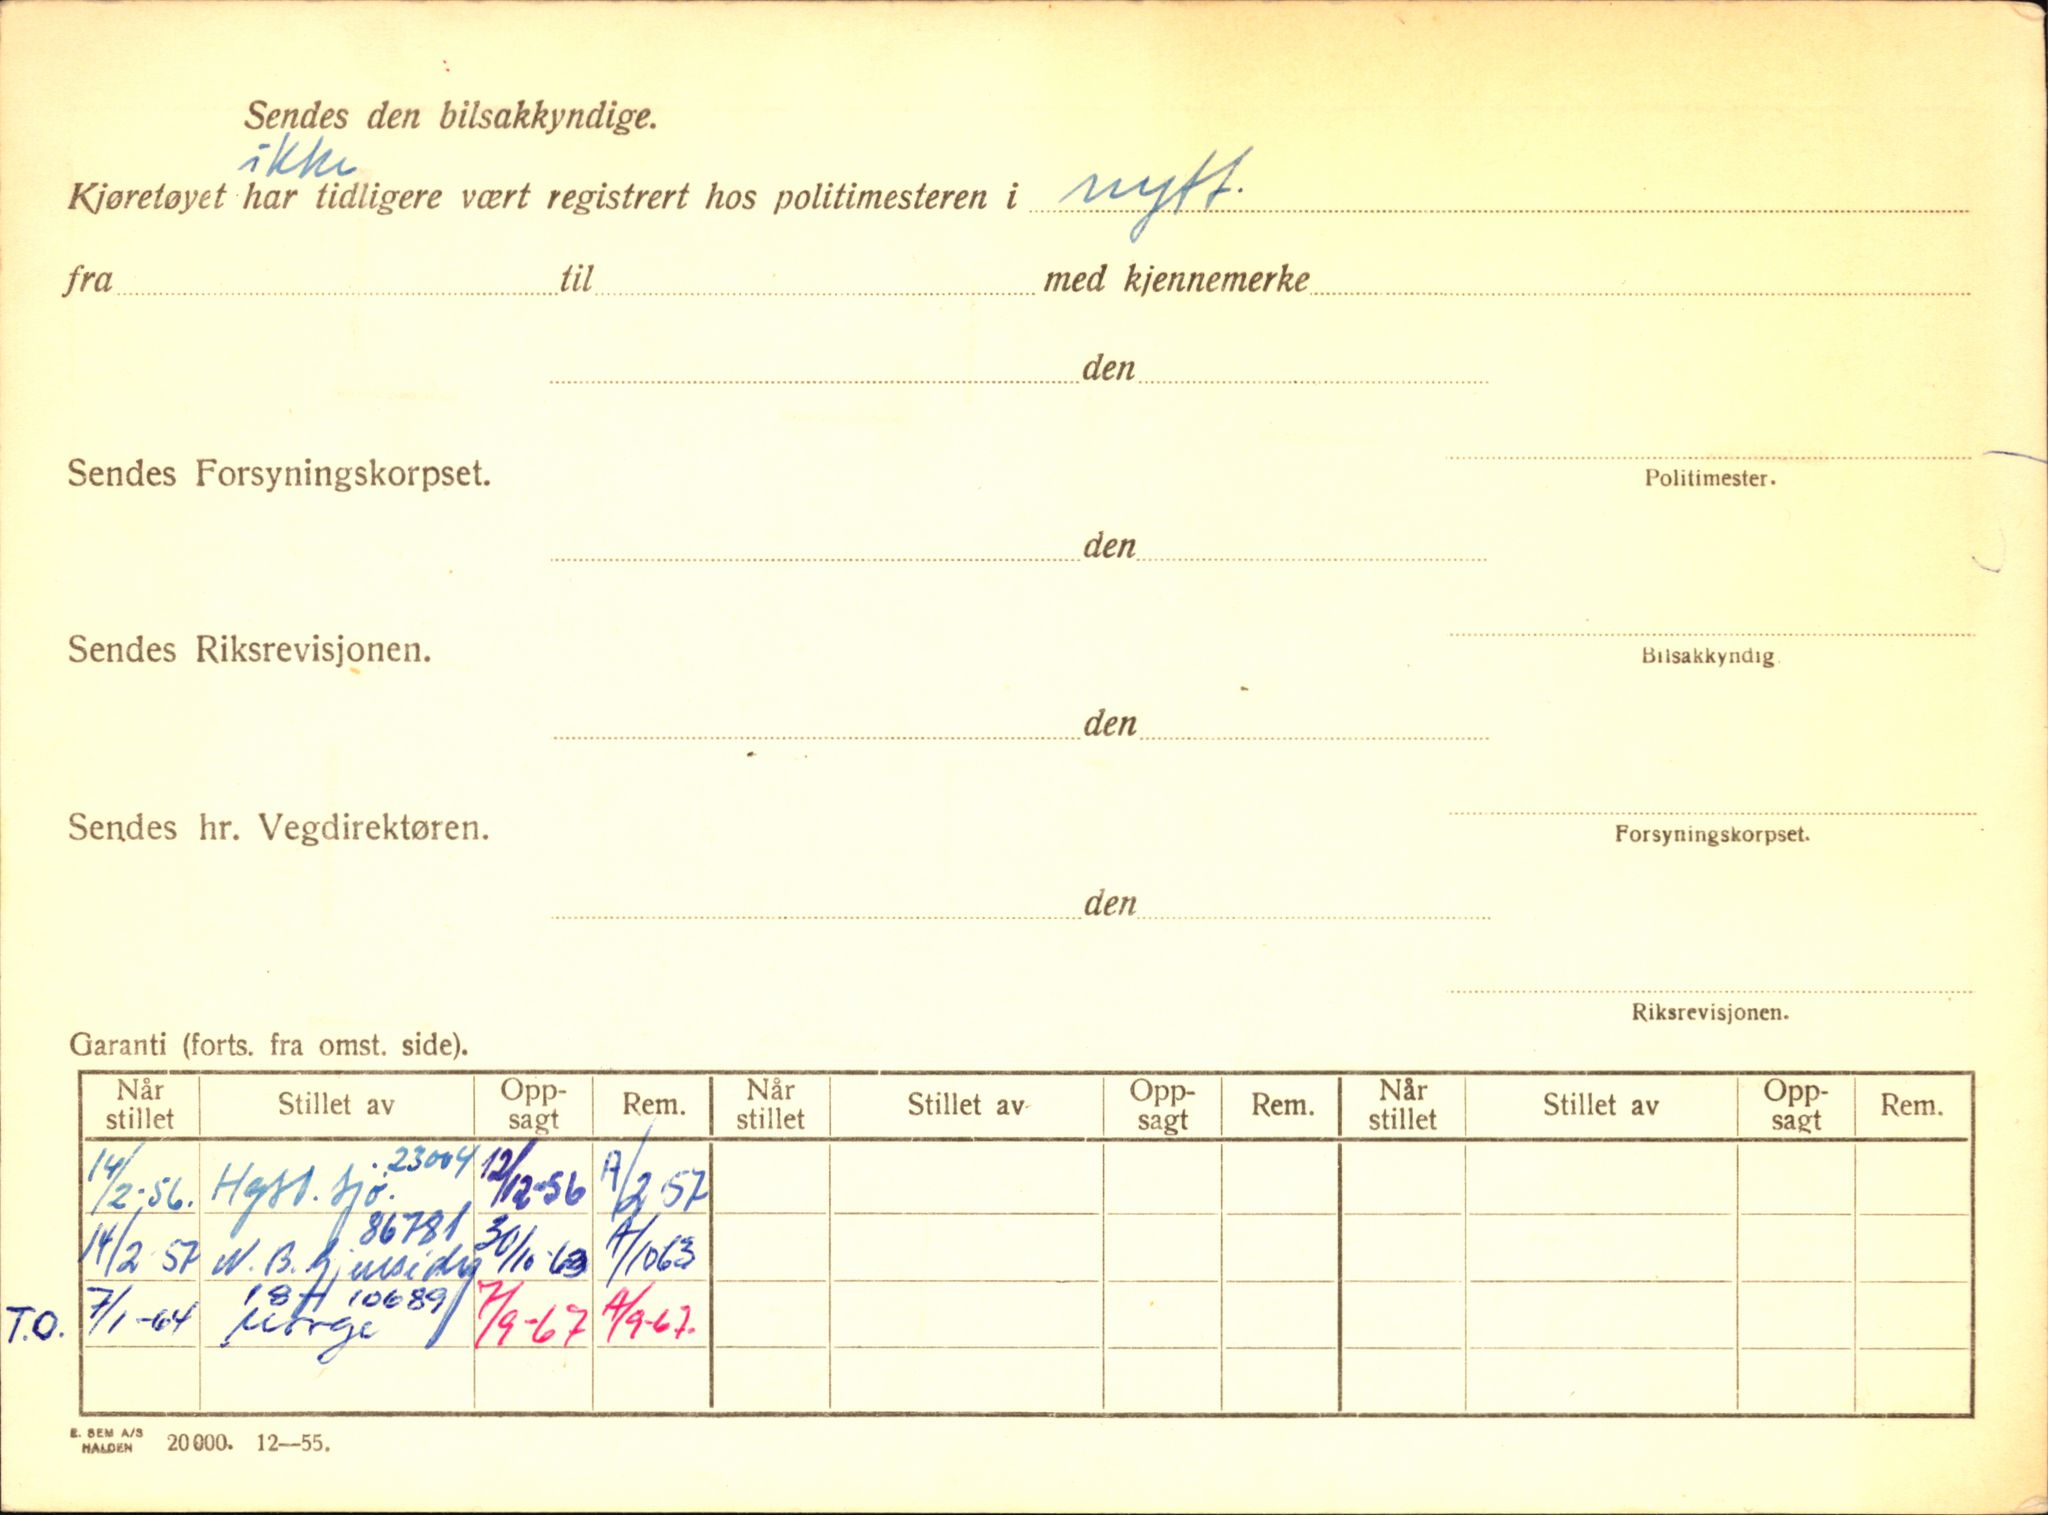 Sendes den bilsakkyndige.
ikke
Kjøretøyet har tidligere vært registrert hos politimesteren i nytt.
fra til med kjennemerke
den
Sendes Forsyningskorpset.
Politimester.
den
Sendes Riksrevisjonen.
Bilsakkyndig.
den
Sendes hr. Vegdirektøren.
Forsyningskorpset.
den
Riksrevisjonen.
Garanti (forts. fra omst. side).
Når stillet Stillet av Opp-sagt Rem. Når stillet Stillet av Opp-sagt Rem. Når stillet Stillet av Opp-sagt Rem.
14/2-56. sjø. 23004 12/12-56 A/2 57
14/2 57 N. B. 86781 30/10-63 A/1063
T.O. 7/1-64 Norge 10689 7/9-67 A/9-67.
E. SEM A/S HALDEN 20000. 12—55.